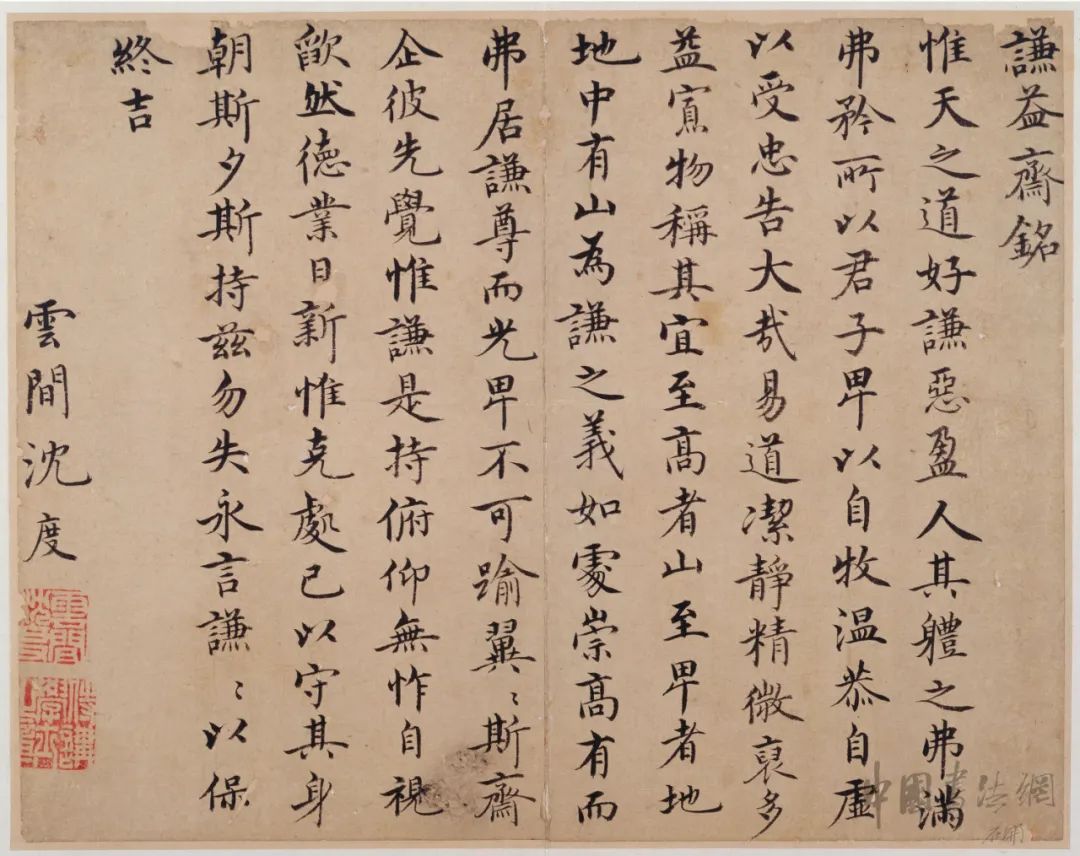 謙益齋銘
惟天之道好謙惡盈人其體之弗滿
弗矜所以君子卑以自牧温恭自虛
以受忠告大哉易道潔靜精微裒多
益寡物稱其宜至高者山至卑者地
地中有山為謙之義如處崇高有而
弗居謙尊而光卑不可踰翼〻斯齋
企彼先覺惟謙是持俯仰無怍自視
歉然德業日新惟克處己以守其身
朝斯夕斯持茲勿失永言謙〻以保
終吉
雲間沈度
中國書法網